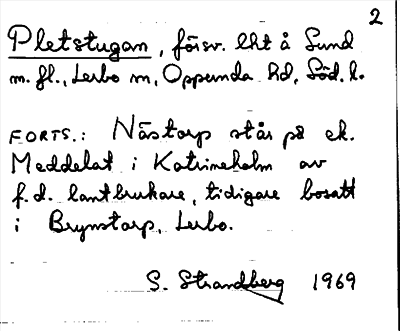 2
Pletstugan, försv. lht å Sund
m. fl., Lerbo sn, Oppunda hd, Söd. l.
FORTS.: Nästorp står på ek.
Meddelat i Katrineholm av
f.d. lantbrukare, tidigare bosatt
i Brynstorp, Lerbo.
S. Strandberg 1969